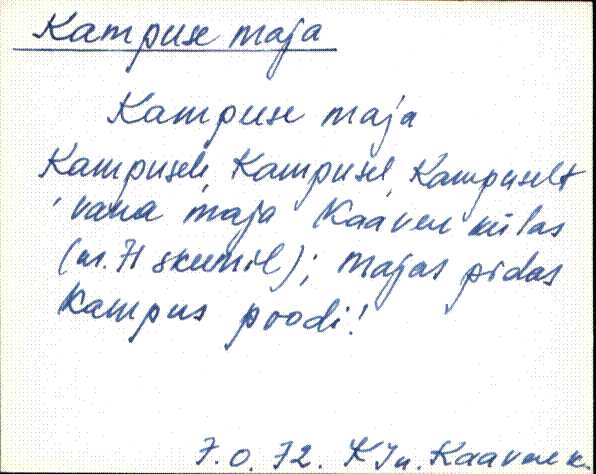 Kampuse maja
Kampuse maja
Kampusele, Kampusel, Kampuselt
'vana maja Kaavere külas
(nr. 71 skeemil); majas pidas
Kampus poodi!
7.0.72. KJn. Kaavere k.